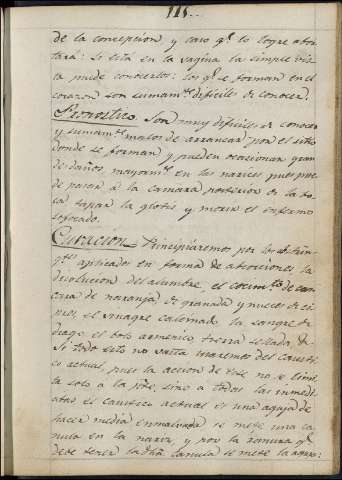 111..
de la concepcion, y caso q.e lo logre abor-
tará: si está en la vagina la simple vis-
ta puede conocerlos: los q.e se forman en el
corazon son sumam.te dificiles de conocer.
Pronostico. Son muy dificiles de conocer
y sumam.te malos de arrancar por el sitio
donde se forman, y pueden ocasionar gran-
des daños, mayorm.te en las narices pues pue-
de pasar à la camara posterior de la bo-
ca tapar la glotis y morir el enfermo
sofocado.
Curacion. Principiaremos por los astrin-
g.tes aplicados en forma de absorciones, la
disolucion del alumbre, el cocim.to de cas-
cara de naranja, de granada y nueces de ci-
pres, el vinagre calcinado la sangre de
drago el bolo armenico, tierra sellada, &.
Si todo esto no vasta usaremos del causti-
co actual, pues la accion de este no se limi-
ta solo a la pte., sino a todas las inmedi-
atas el caustico actual es una aguja de
hacer media enmalvada se mete una ca-
nula en la nariz, y por la ranura q.e
debe tener la dha. canula se mete la aguja: